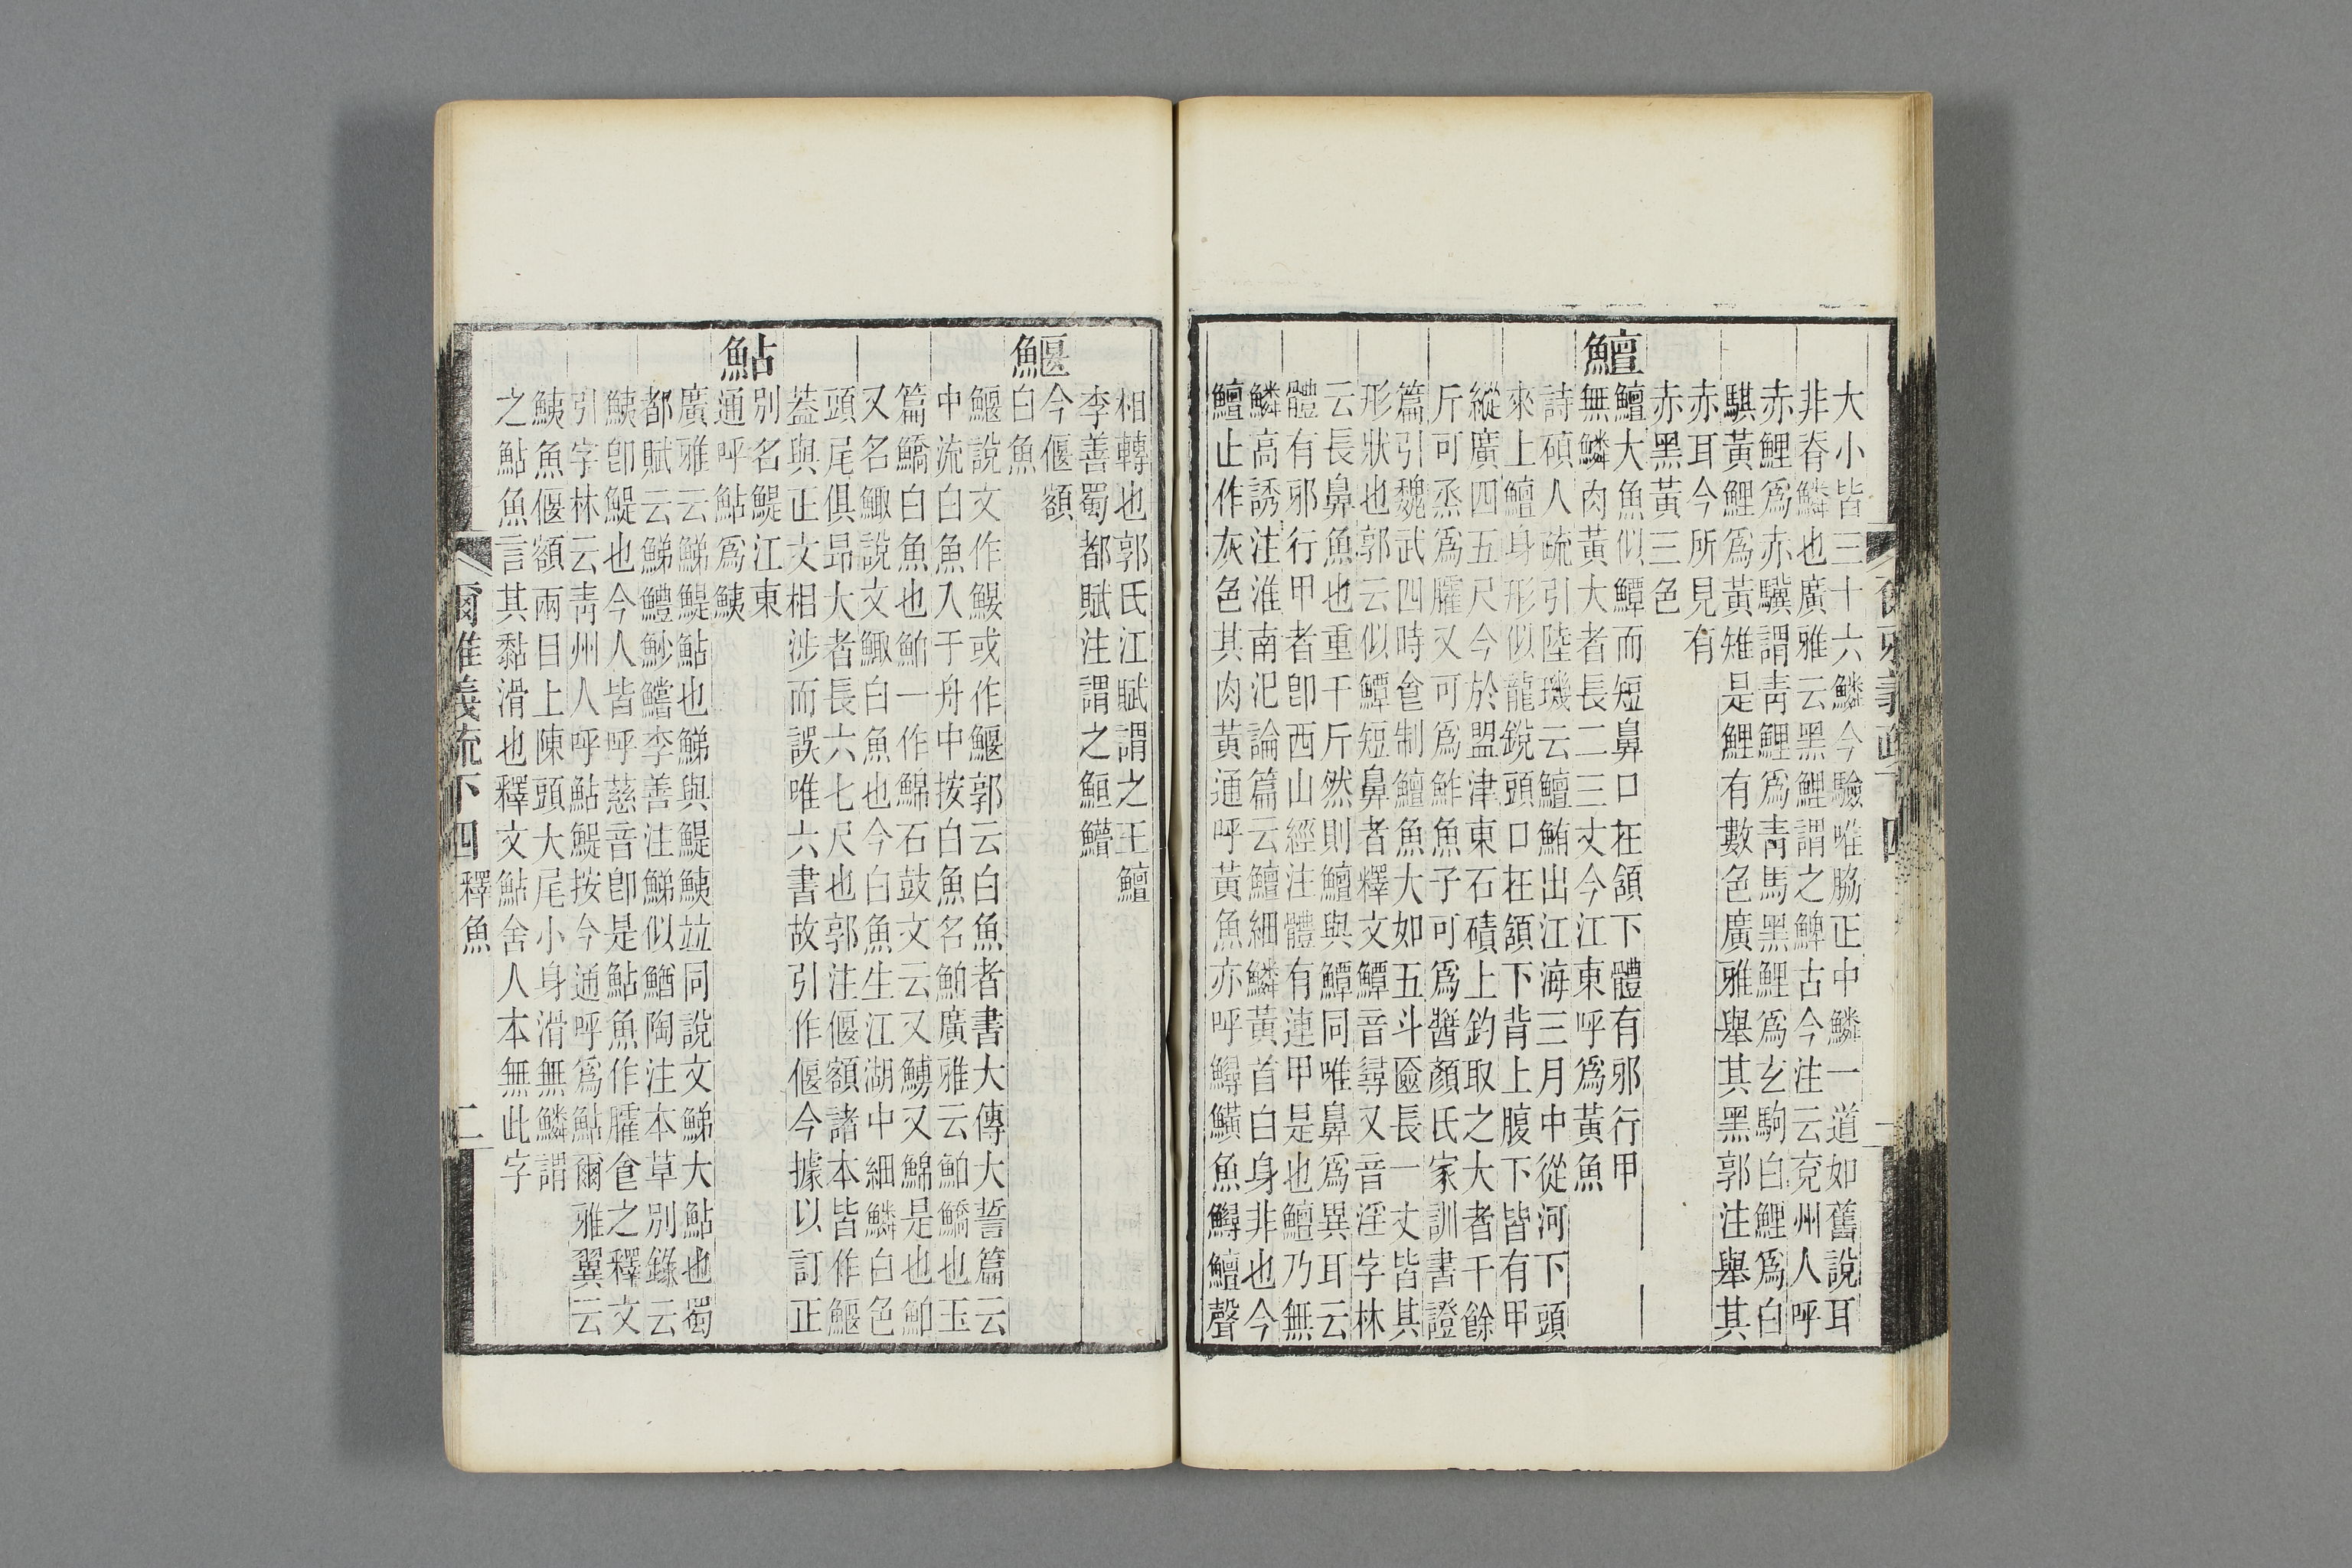 大小皆三十六鱗今驗唯脇正中鱗一道如舊說耳
非脊鱗也廣雅云黑鯉謂之鯶古今注云兗州人呼
赤鯉爲赤驥謂靑鯉爲靑馬黑鯉爲玄駒白鯉爲白
騏黃鯉爲黃雉是鯉有數色廣雅舉其黑郭注舉其
赤耳今所見有
赤黑黃三色
鱣
鱣大魚似鱏而短鼻口在頷下體有邪行甲
無鱗肉黃大者長二三丈今江東呼爲黃魚
詩碩人疏引陸璣云鱣鮪出江海三月中從河下頭
來上鱣身形似龍銳頭口在頷下背上腹下皆有甲
縱廣四五尺今於盟津東石磧上釣取之大者千餘
斤可烝爲臛又可爲鮓魚子可爲醬顏氏家訓書證
篇引魏武四時食制鱣魚大如五斗匳長一丈皆其
形狀也郭云似鱏短鼻者釋文鱏音尋又音淫字林
云長鼻魚也重千斤然則鱣與鱏同唯鼻爲異耳云
體有邪行甲者卽西山經注體有連甲是也鱣乃無
鱗高誘注淮南氾論篇云鱣細鱗黃首白身非也今
鱣止作灰色其肉黃通呼黃魚亦呼鱘鱑魚鱘鱣聲
相轉也郭氏江賦謂之王鱣
李善蜀都賦注謂之䱭䲛
鰋
今偃額
白魚
鰋說文作鰋或作鰋郭云白魚者書大傳大誓篇云
中流白魚入于舟中按白魚名鮊廣雅云鮊鱎也玉
篇鱎白魚也鮊一作鯿石鼓文云又鱄又鯿是也鮊
又名鯫說文鯫白魚也今白魚生江湖中細鱗白色
頭尾俱昂大者長六七尺也郭注偃額諸本皆作鰋
葢與正文相涉而誤唯六書故引作偃今據以訂正
鮎
別名鯷江東
通呼鮎爲鮧
廣雅云鮷鯷鮎也鮷與鯷鮧竝同說文鮷大鮎也蜀
都賦云鮷鱧魦鱨李善注鮷似鰌陶注本草別錄云
鮧卽鯷也今人皆呼慈音卽是鮎魚作臛食之釋文
引字林云靑州人呼鮎鯷按今通呼爲鮎爾雅翼云
鮧魚偃額兩目上陳頭大尾小身滑無鱗謂
之鮎魚言其黏滑也釋文鮎舍人本無此字
爾雅義疏下四 釋魚 二